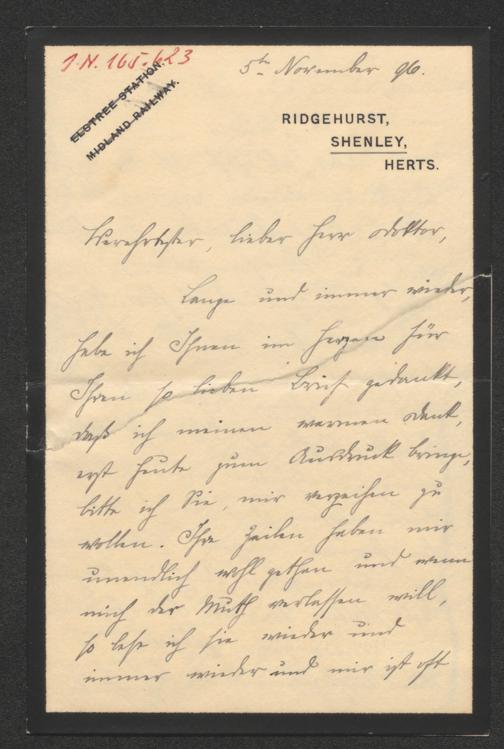 I.N. 165.623
ELSTREE STATION.
MIDLAND RAILWAY.
5th November 96.
RIDGEHURST,
SHENLEY,
HERTS.
Verehrtester, lieber Herr Doktor,
Lange und immer wieder,
habe ich Ihnen im Herzen für
Ihren so lieben Brief gedankt,
daß ich meinen warmen Dank,
erst heute zum Ausdruck bringe,
bitte ich Sie, mir verzeihen zu
wollen. Ihre Zeilen haben mir
unendlich wohl gethan und wenn
mich der Muth verlassen will,
so lese ich sie wieder und
immer wieder und mir ist oft